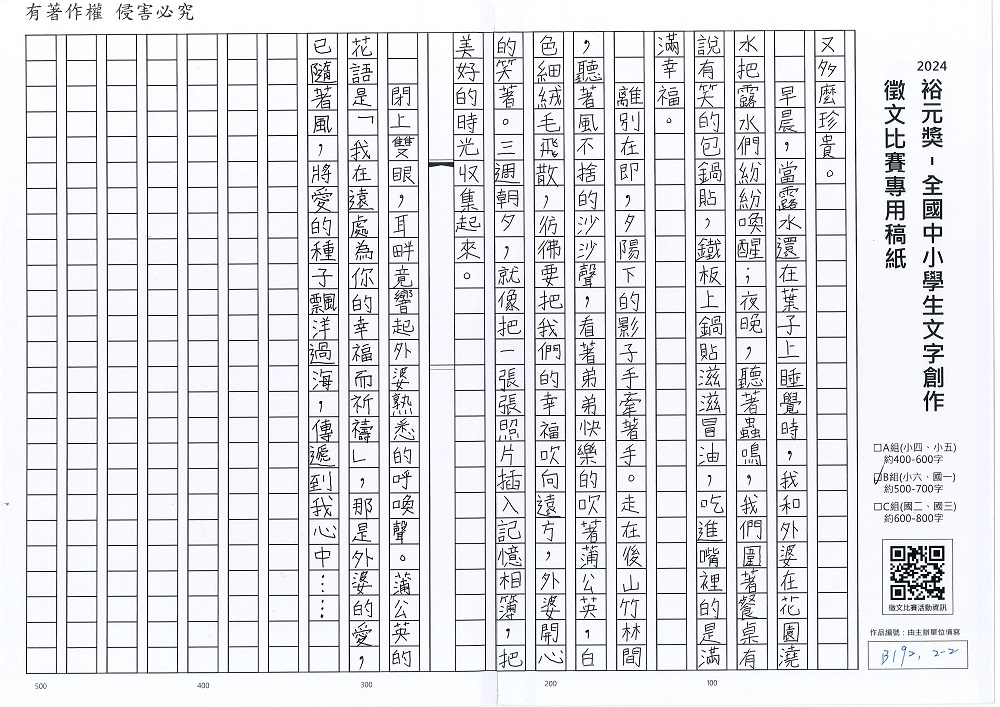 有著作權 侵害必究
2024 裕元獎-全國中小學生文字創作
徵文比賽專用稿紙
□A組(小四、小五)
約400-600字
□B組(小六、國一)
約500-700字
□C組(國二、國三)
約600-800字
徵文比賽活動資訊
作品編號：由主辦單位填寫
B192, 2-2
又多麼珍貴。
早晨，當露水還在葉子上睡覺時，我和外婆在花園澆
水把露水們紛紛喚醒；夜晚，聽著蟲鳴，我們圍著餐桌有
說有笑的包鍋貼，鐵板上鍋貼滋滋冒油，吃進嘴裡的是滿
滿幸福。
離別在即，夕陽下的影子手牽著手。走在後山竹林間
，聽著風不捨的沙沙聲，看著弟弟快樂的吹著蒲公英，白
色細絨毛飛散，彷彿要把我們的幸福吹向遠方，外婆開心
的笑著。三週朝夕，就像把一張張照片插入記憶相簿，把
美好的時光收集起來。
閉上雙眼，耳畔竟響起外婆熟悉的呼喚聲。蒲公英的
花語是「我在遠處為你的幸福而祈禱」，那是外婆的愛，
已隨著風，將愛的種子飄洋過海，傳遞到我心中……
100
200
300
400
500